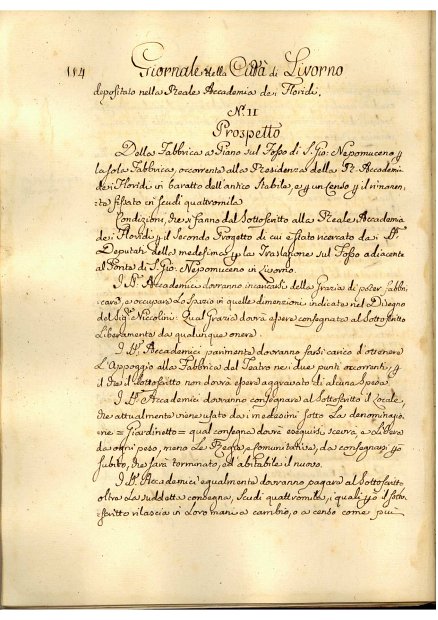 114 Giornale della Città di Livorno
depositato nella Reale Accademia dei Floridi.
N. II
Prospetto
Della Fabbrica a Piano sul Fosso di S. Gio: Nepomuceno p
la sola Fabbrica, occorrente alla Presidenza della R. Accademi
dei Floridi in baratto dell'antico Stabile, e p un Censo p il rimanen
te fissato in scudi quattromila
Condizioni, che si fanno dal Sottoscritto alla Reale Accademia
dei Floridi p il Secondo Progetto di cui è stato ricercato dai
Deputati della medesima p la Traslazione sul Fosso adiacente
al Ponte di S. Gio: Nepomuceno in Livorno.
I Accademici dovranno incaricarsi della Grazia di poter fabbri
care, e occupare lo spazio in quelle dimenzioni indicate nel Disegno
del Sig. Niccolini: Qual Grazia dovrà essere consegnata al Sottoscritto
Liberamente da qualunque onere.
I Accademici parimente dovranno farsi carico d'ottenere
l'Appoggio alla Fabbrica del Teatro nei due punti occorrenti, p
il che il Sottoscritto non dovrà essere aggravato di alcuna Spesa.
I Accademici dovranno consegnare al Sottoscritto il Locale,
che attualmente viene usato dai medesimi sotto la denominazio
ne = Giardinetto = qual consegna dovrà eseguirsi scevra, e Libera
da ogni peso, meno le Regie e Comunitative, da consegnarsi p
subito, che sarà terminato, ed abitabile il nuovo.
I Accademici egualmente dovranno pagare al Sottoscritto
oltre la suddetta consegna, Scudi quattromila, i quali p il sotto
scritto rilascia in Loro mani a cambio, o a censo come più